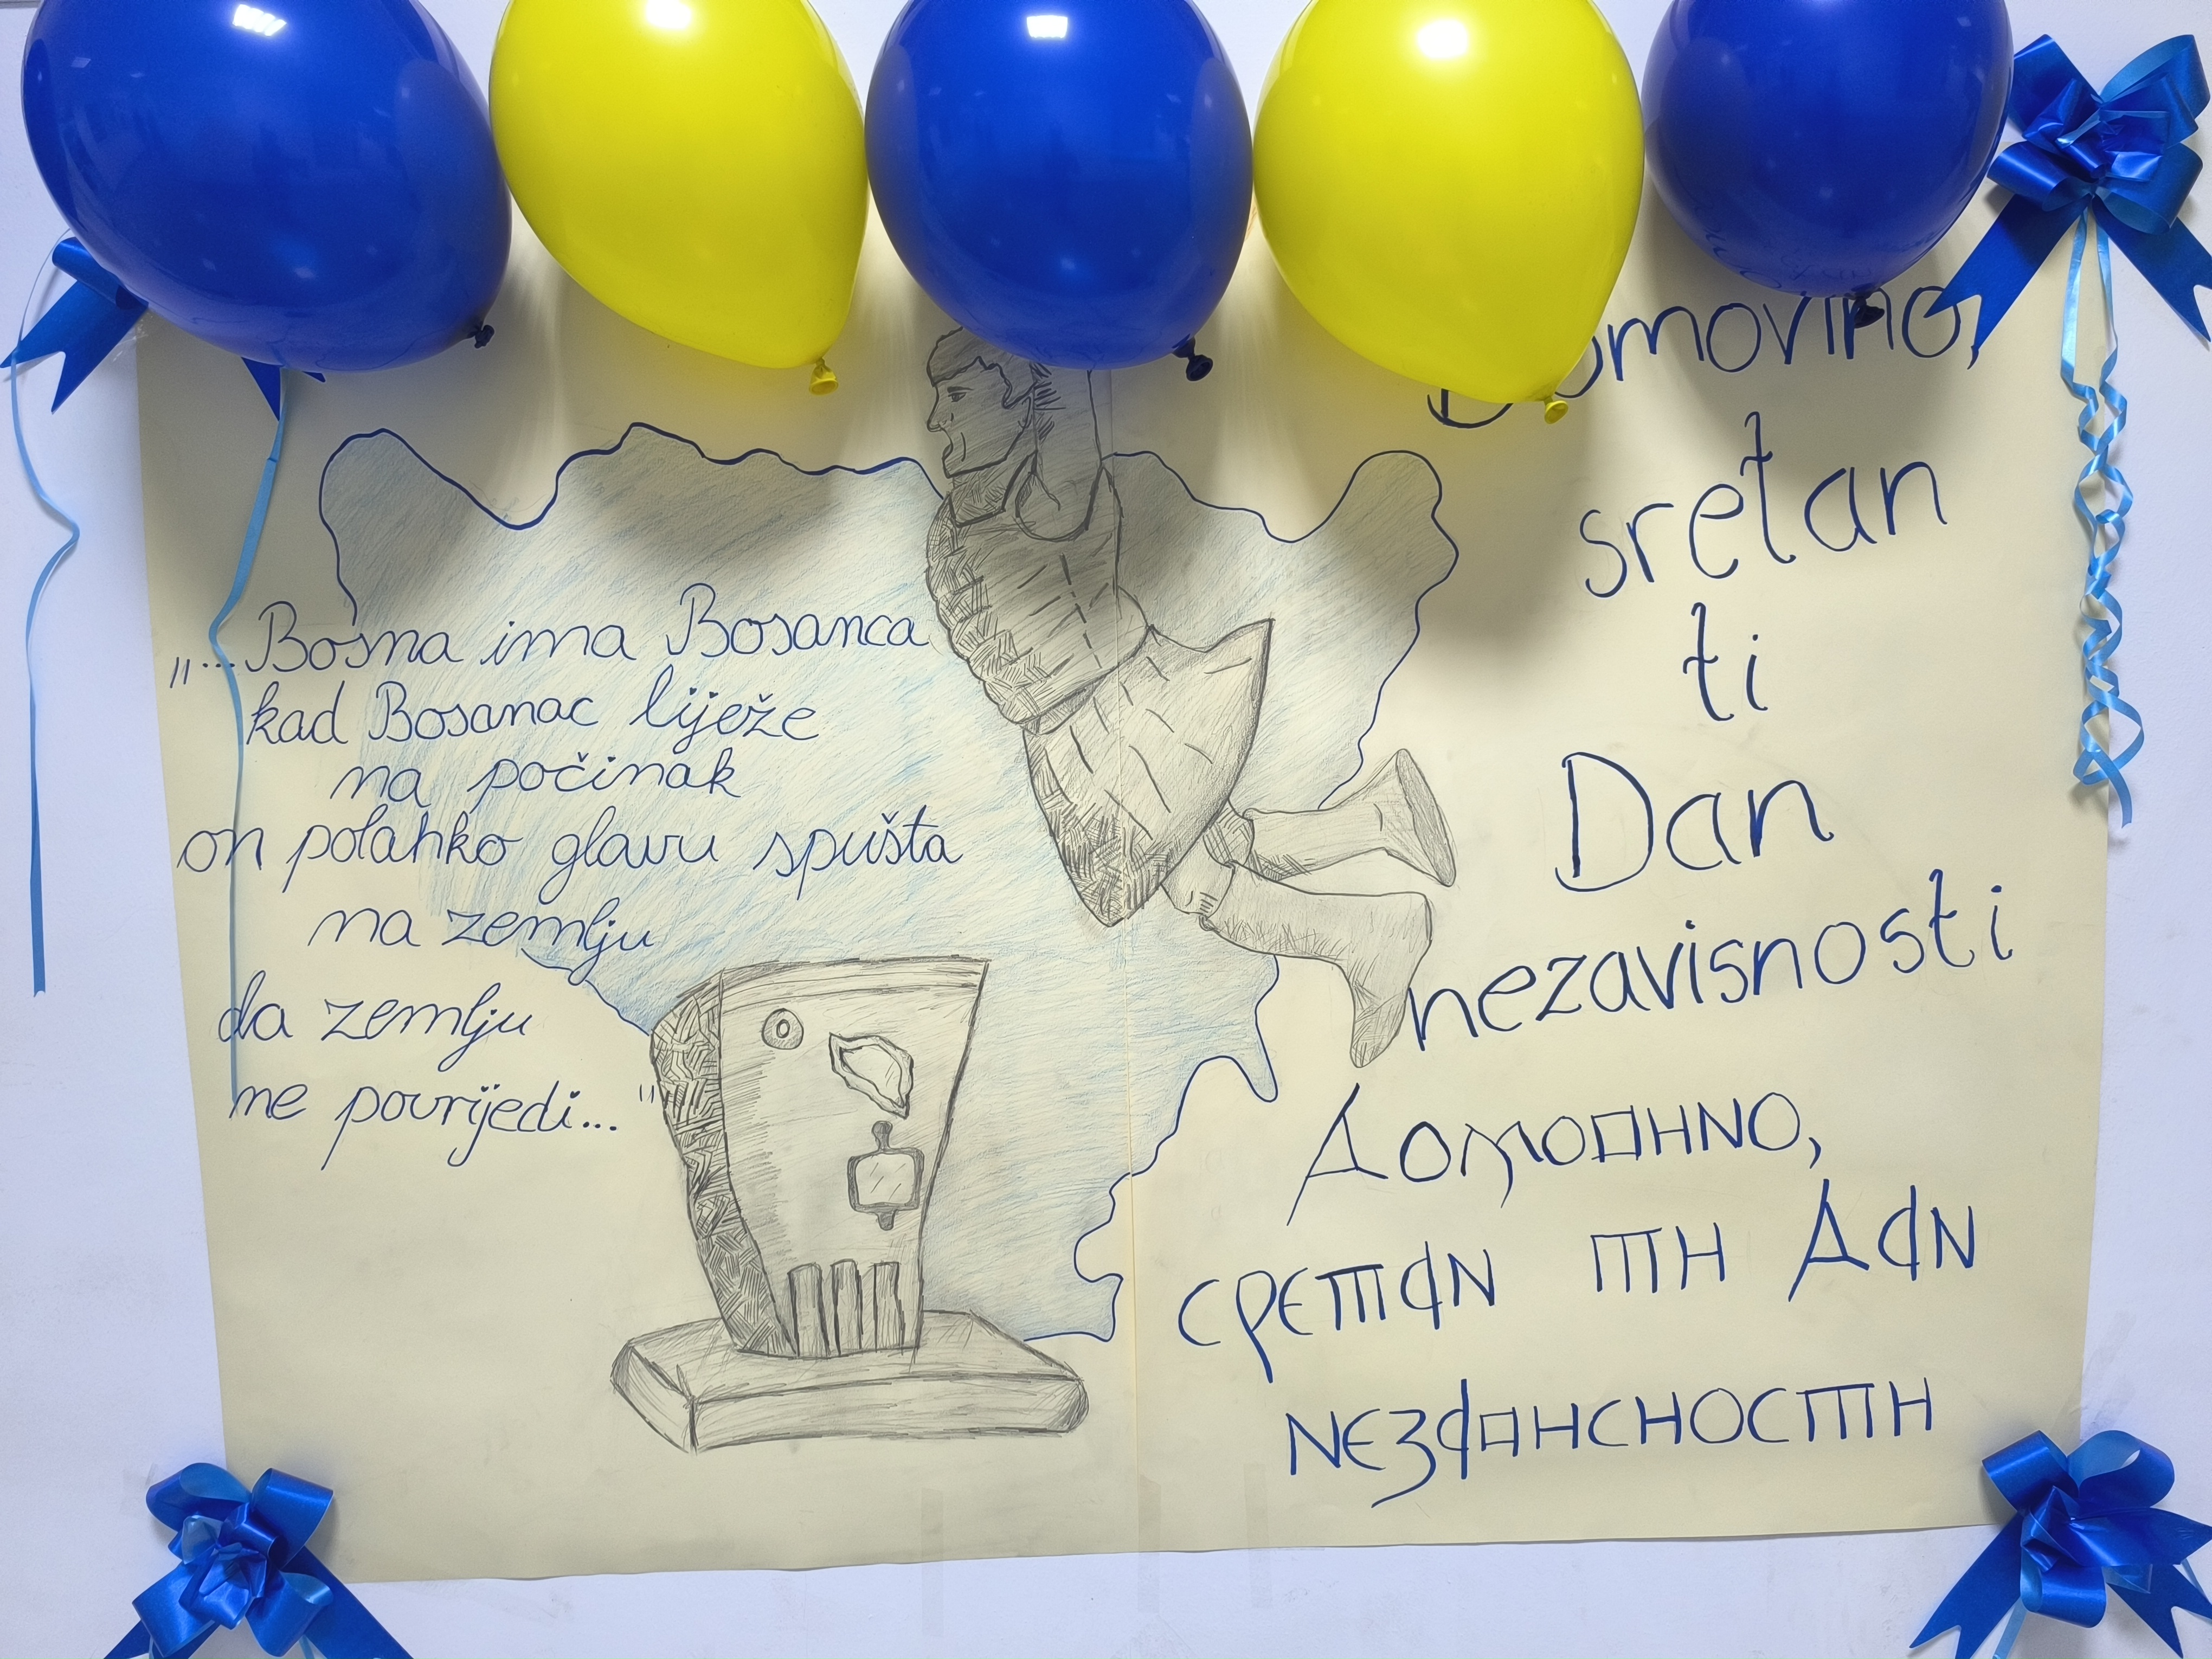 „...Bosna ima Bosanca
kad Bosanac liježe
na počinak
on polahko glavu spušta
na zemlju
da zemlju
ne povrijedi..."
Domovino,
sretan
ti
Dan
nezavisnosti
Домовино,
сретан ти Дан
независности